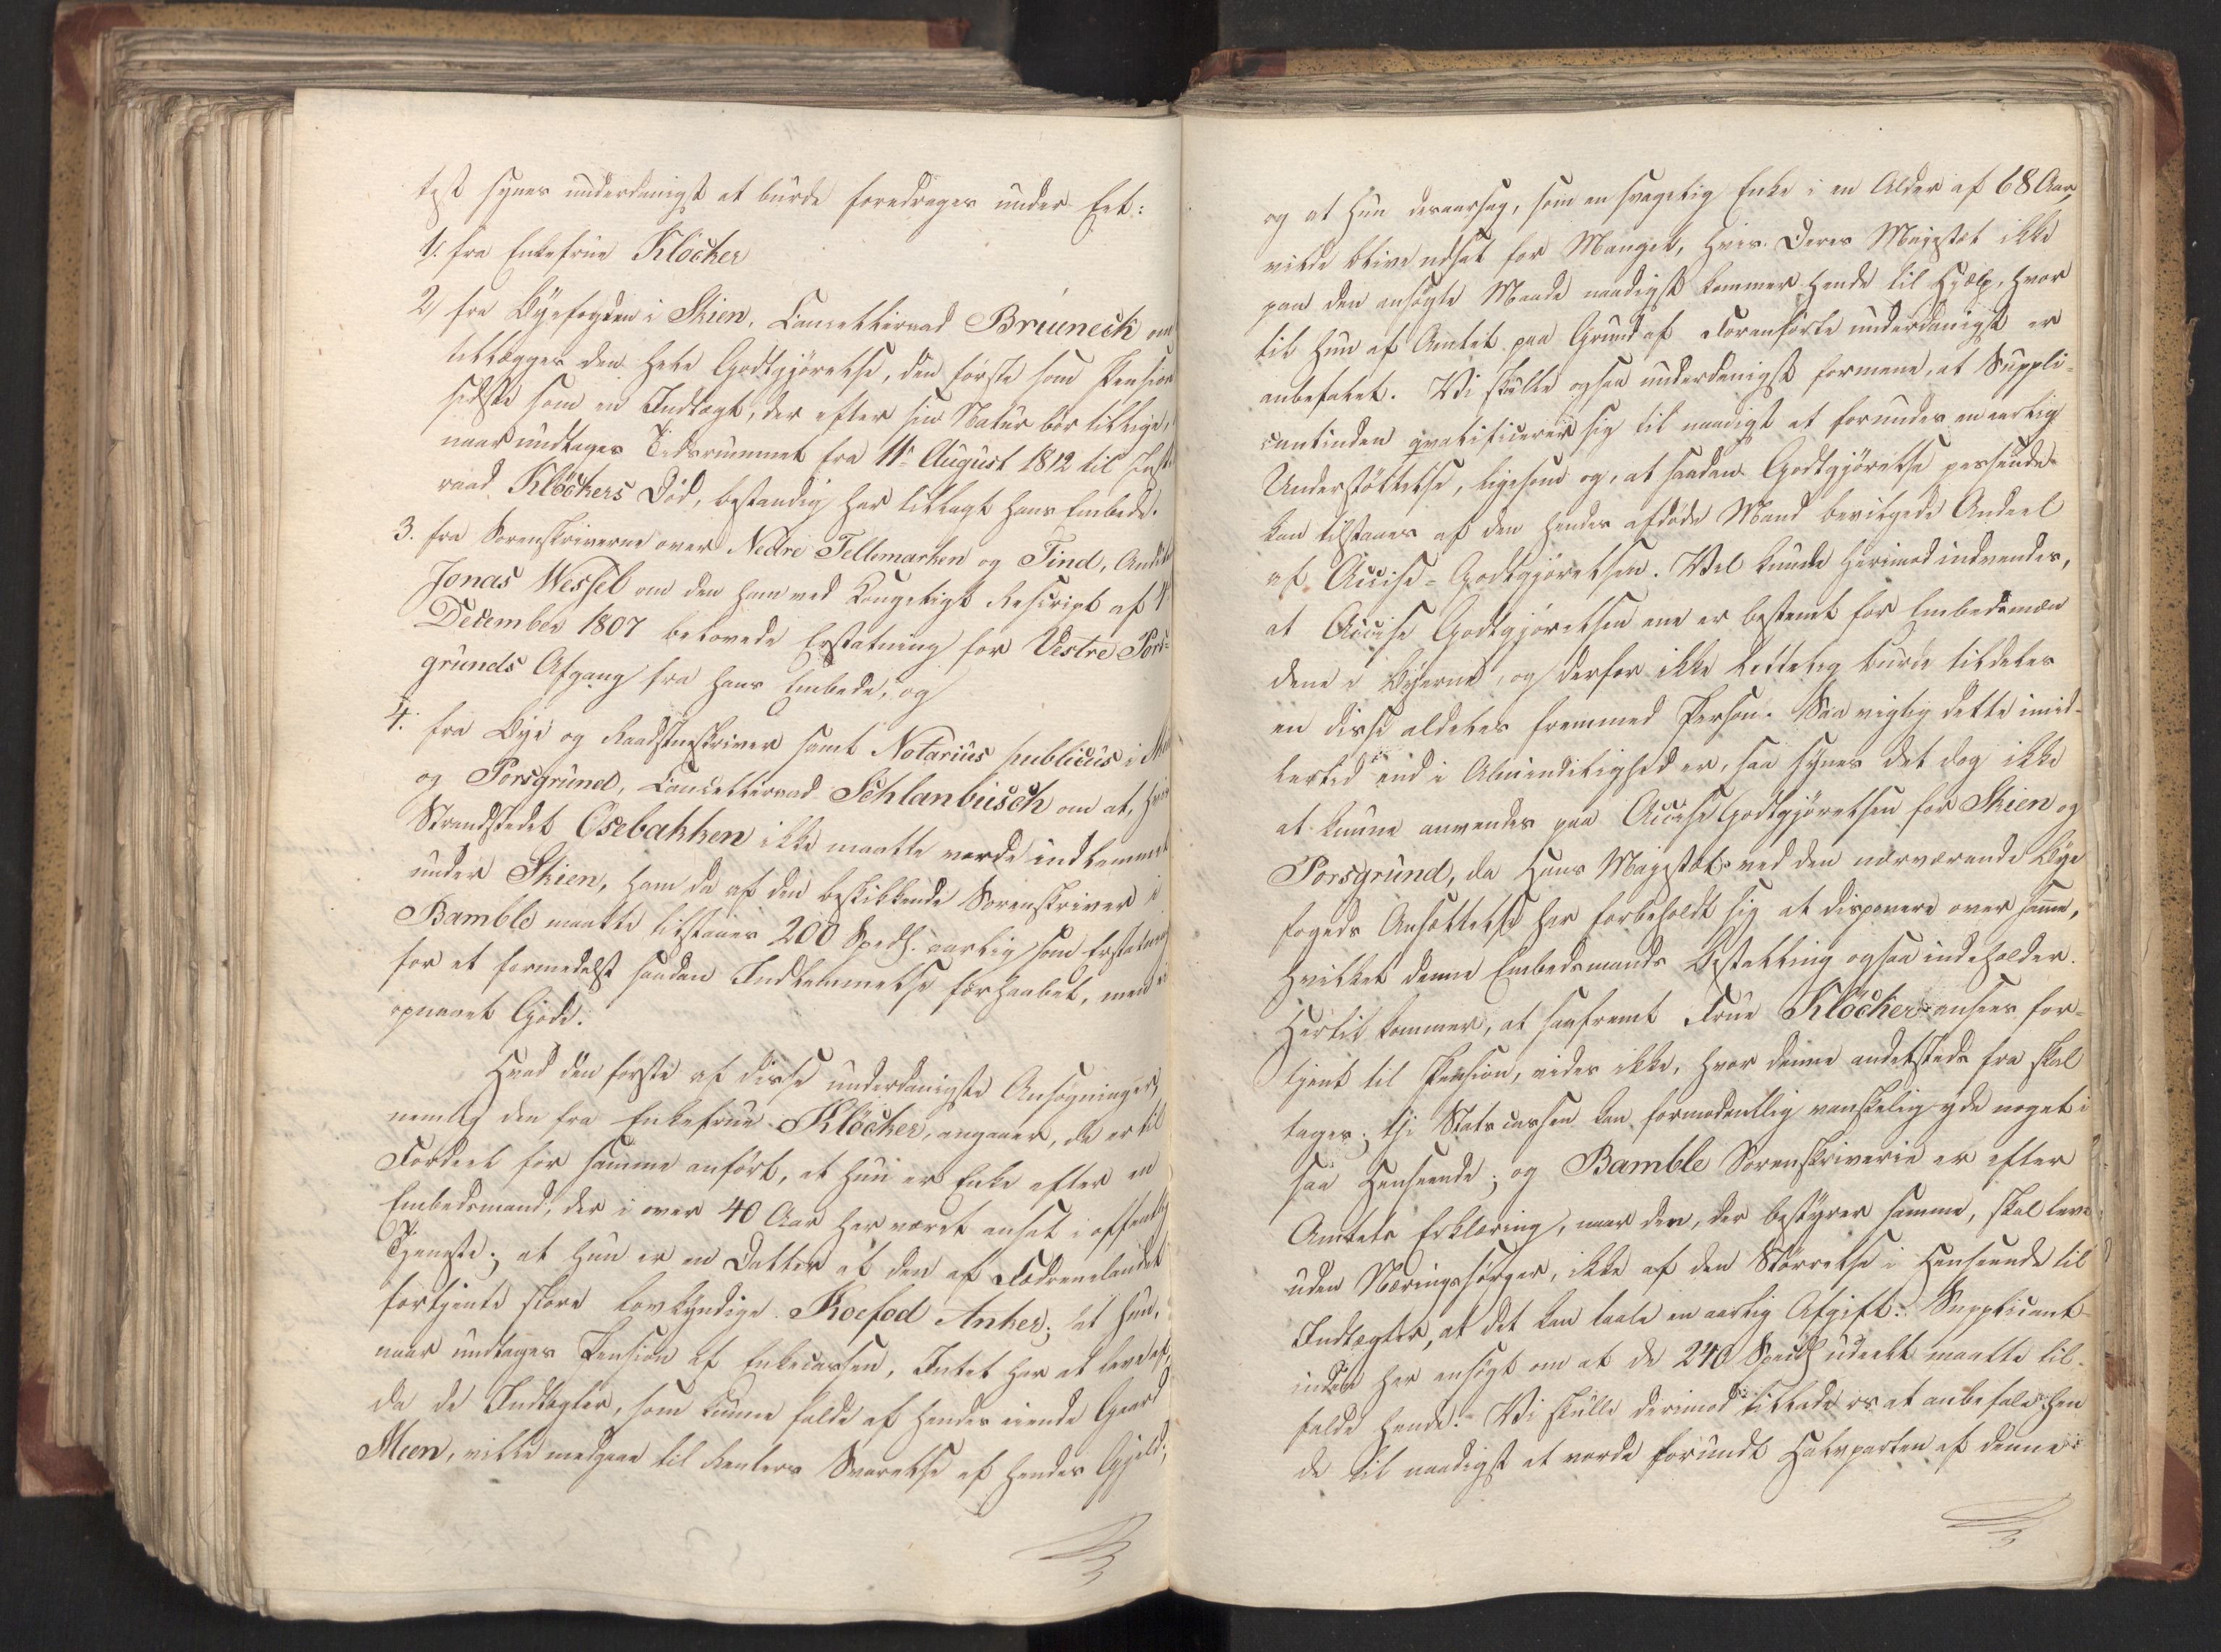 test synes underdanigst at burde foredrages under Eet:
1. fra Enkefrue Klöcker
2, fra Byefogden i Skien, Cancelliraad Brüneck om
tillægges den hele Godtgjörelse, den förste som Pension
sidste som en Indtægt, der efter sin Natur bör tillige,
naar undtages Tidsrummet fra 11te August 1812 til
raad Klöckers Död, bestandig har tillagt hans Embede.
3. fra Sorenskriveren over Nedre Tellemarken og Tind,
Jonas Wessel om den ham ved Kongeligt Rescript af 4
December 1807 belovede Erstatning for Vestre Pors-
grunds Afgang fra hans Embede, og
4. fra Bye og Raadstueskriver samt Notarius publicus i
og Porsgrund, Cancelliraad Schlanbusch om at,
Strandstedet Osebakken ikke maatte vorde indlemmet
under Skien, ham da af den beskikkende Sorenskriver i
Bamble maatte tilstaaes 200 Spdlr. aarlig som Erstatning
for et formedelst saadan Indlemmelse forhaabet, men ei
opnaaet Gode.
Hvad den förste af disse underdanigste Ansögninger,
nemlig den fra Enkefrue Klöcker, angaaer, da er til
Fordeel for samme anfört, at hun er Enke efter en
Embedsmand, der i over 40 Aar har været ansat i offentlig
Tjeneste; at hun er en Datter af den af Fædrenelandet
fortjente store lovkyndige Koefod Anker; at hun,
naar undtages Pension af Enkecassen, Intet har at leve af,
da de Indtægter, som kunne falde af hendes eiende Gaard
Meen, ville medgaae til Renters Svarelse af hendes Gjeld;
og at hun desaarsag, som en svagelig Enke i en Alder af 68 Aar,
vilde blive udsat for Mangel, hvis Deres Majestæt ikke
paa den ansögte Maade naadigst kommer hende til Hjælp, hvor
til hun af Amtet paa Grund af Foranförte underdanigst er
anbefalet. Vi skulle ogsaa underdanigst formene, at Suppli-
cantinden qvalificerer sig til naadigst at forundes en aarlig
Understöttelse, ligesom og, at saadan Godtgjörelse passende
kan tilstaaes af den hendes afdöde Mand bevilgede Andeel
af Accise-Godtgjörelsen. Vel kunde herimod indvendes,
at Accise Godtgjörelsen ene er bestemt for Embedsmæn
dene i Byerne, og derfor ikke lettelig burde tildeles
en disse aldeles fremmed Person. Saa vigtig dette imid-
lertid end i Almindelighed er, saa synes det dog ikke
at kunne anvendes paa Accise Godtgjörelsen for Skien og
Porsgrund, da Hans Majestæt ved den nærværende Bye
fogeds Ansættelse har forbeholdt sig at disponere over samme,
hvilket denne Embedsmands Bestalling ogsaa indeholder.
Hertil kommer, at saafremt Frue Klöcker ansees for-
tjent til Pension, vides ikke, hvor denne andetsteds fra skal
tages; thi Statscassen kan formodentlig vanskelig yde noget i
saa Henseende; og Bamble Sorenskriverie er efter
Amtets Erklæring, naar den, der bestyrer samme, skal leve
uden Næringssorger, ikke af den Störrelse i Henseende til
Indtægter, at det kan taale en aarlig Afgift. Supplicant-
inden har ansögt om at de 240 Specdlr udeelt maatte til-
falde hende. Vi skulle derimod tillade os at anbefale hen
de til naadigst at vorde forundt Halvparten af denne